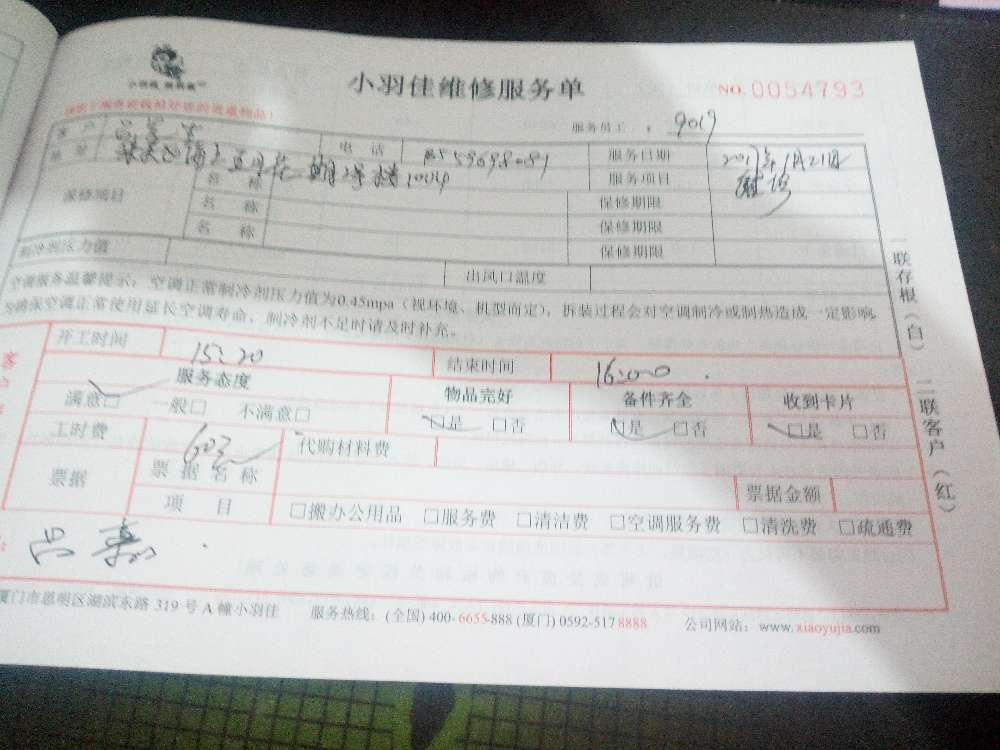 小羽佳维修服务单
NO. 0054793
服务员工： 9019
电 话 服务日期 2017年1月21日
名 称 服务项目
保修项目 名 称 保修期限
名 称 保修期限
保修期限
制冷剂压力值 出风口温度
空调服务温馨提示：空调正常制冷剂压力值为0.45mpa（视环境、机型而定），拆装过程会对空调制冷或制热造成一定影响，
为确保空调正常使用延长空调寿命，制冷剂不足时请及时补充。
开工时间 15:20 结束时间 16:00
服务态度 物品完好 备件齐全 收到卡片
满意□ 一般□ 不满意□ □是 □否 □是 □否 □是 □否
工时费 60元 代购材料费
票据 票 据 名 称 票据金额
项 目 □搬办公用品 □服务费 □清洁费 □空调服务费 □清洗费 □疏通费
厦门市思明区湖滨东路 319 号 A 幢小羽佳 服务热线：(全国) 400-6655-888 (厦门) 0592-517 8888 公司网站：www.xiaoyujia.com
一联存根（白） 二联客户（红）